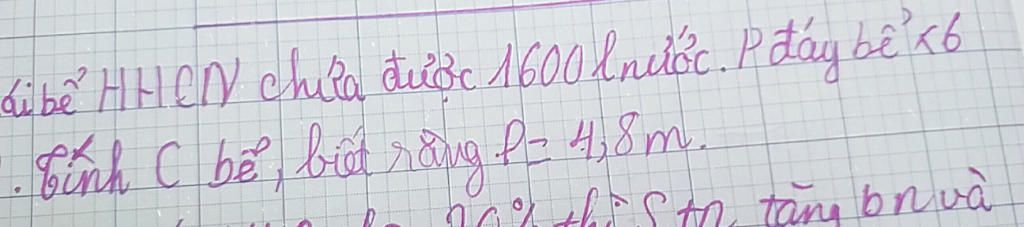 bể HHCN chứa được 1600 l nước. P đáy bể x6
. Tính C bể, biết rằng P = 4,8m.
20% thì S tăng bn và